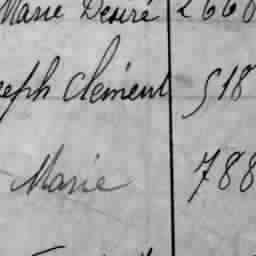 Marie Desiré 2660
seph Clément 518
Marie 788